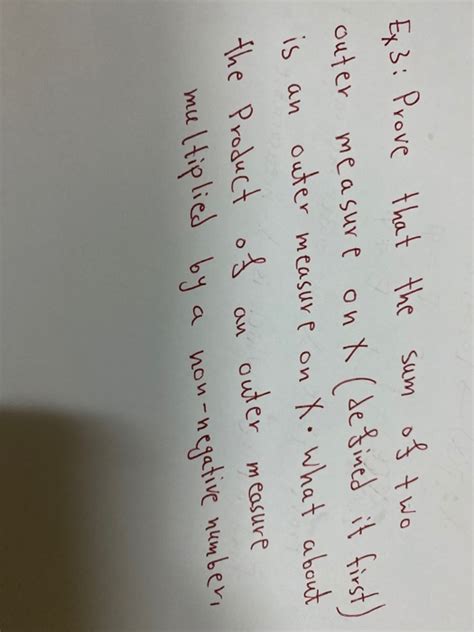 Ex3: Prove that the sum of two
outer measure on X (defined it first)
is an outer measure on X. What about
the Product of an outer measure
multiplied by a non-negative number,